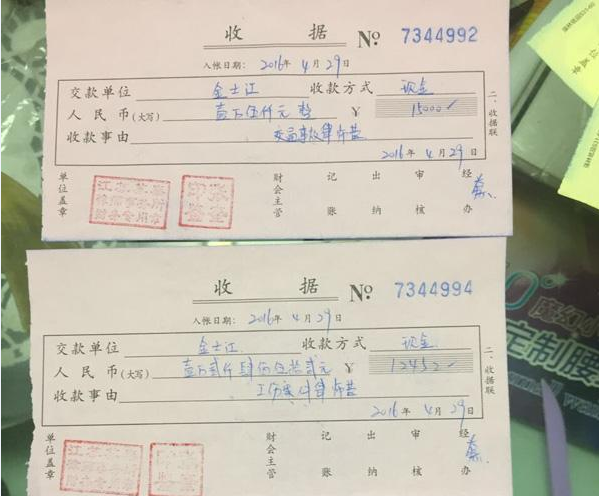 收 据 Nº 7344992
入帐日期: 2016年 4月29日
交款单位 金士江 收款方式 现金
人民币(大写) 壹万伍仟元整 ¥ 15000
收款事由 交通事故律师费
2016年 4月29日
二、收据联
单位盖章 财会主管 记账 出纳 审核 经办
收 据 Nº 7344994
入帐日期: 2016年 4月29日
交款单位 金士江 收款方式 现金
人民币(大写) 壹万贰仟肆佰伍拾贰元 ¥ 12452
收款事由 工伤 律师费
2016年 4月29日
二、收据联
单位盖章 财会主管 记账 出纳 审核 经办
魔幻
定制腰